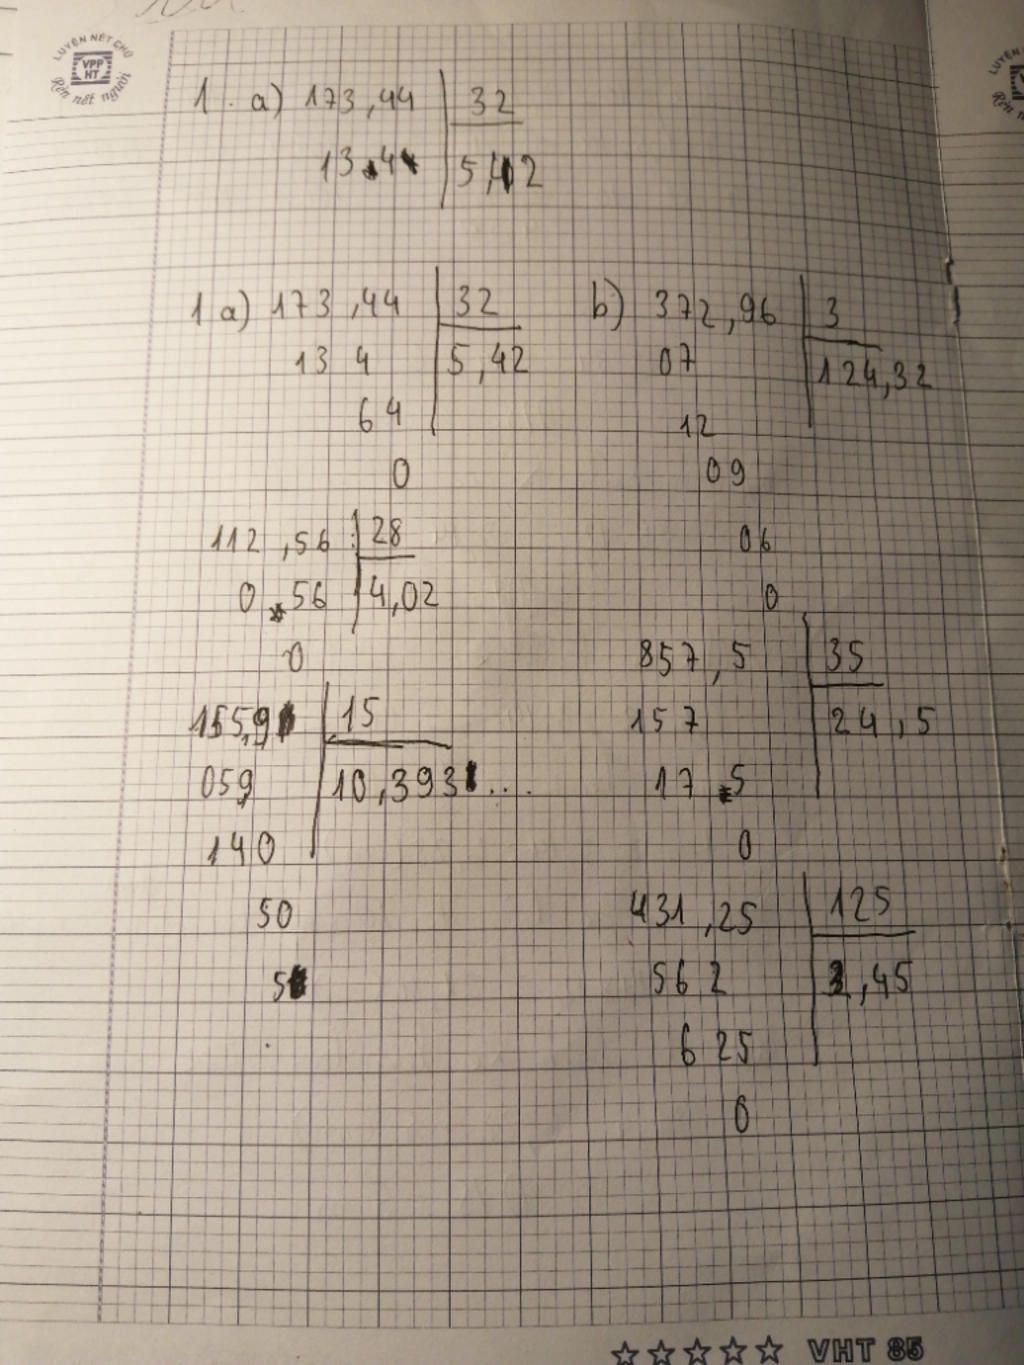 LUYỆN NÉT CHỮ
VPP
HT
Rèn nết người
1. a) 173,44 32
13 4 5, 2
1 a) 173,44 32
13 4 5,42
64
0
112,56 28
0 56 4,02
0
155,9 15
059 10,393...
140
50
5
b) 372,96 3
07 124,32
12
09
06
0
857,5 35
157 24,5
17 5
0
431,25 125
562 3,45
625
0
VHT 85